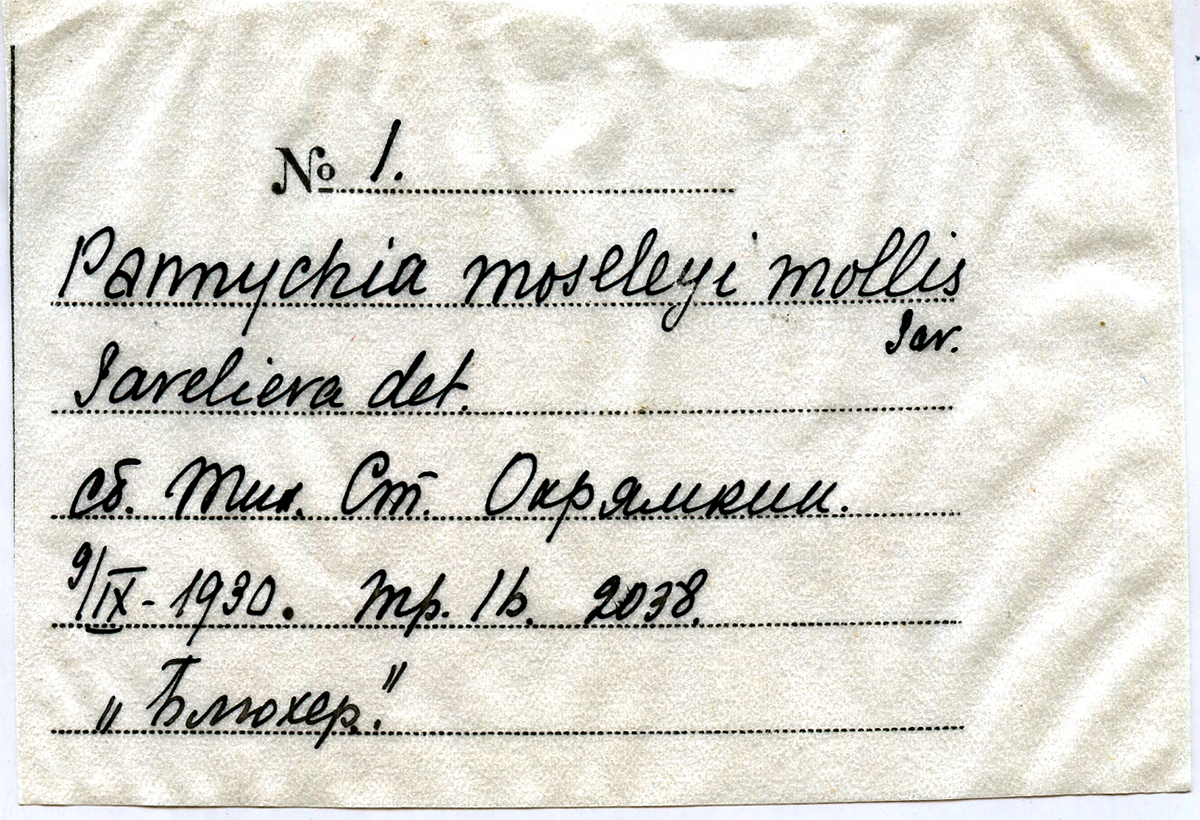 № 1.
Pannychia moseleyi mollis
Sav.
Savelieva det.
сб. Тих. Ст. Окрямкин.
9/IX-1930. тр. 1b. 2038.
„Блюхер."